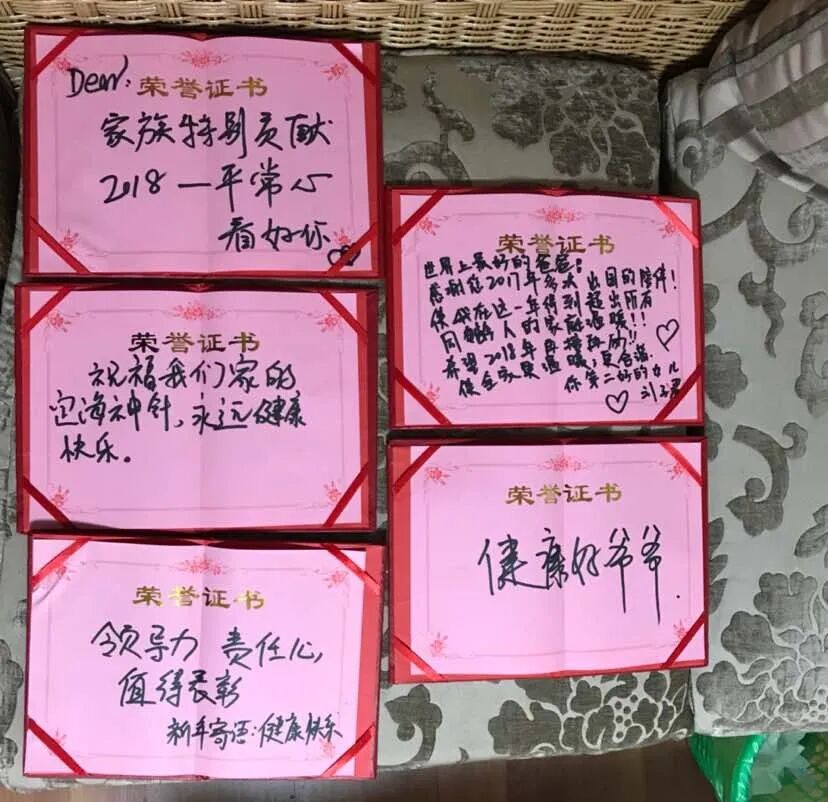 Dear: 荣誉证书
家族特别贡献
2018一平常心
看好你
荣誉证书
祝福我们家的
定海神针，永远健康
快乐。
荣誉证书
领导力 责任心，
值得表彰
新年寄语：健康快乐
荣誉证书
世界上最好的爸爸：
感谢您2017年多次出国的陪伴！
使我在这一年得到超出所有
同龄人的家庭温暖！！
希望2018年再接再励！！
使全家更温暖，更合谐
你第二好的女儿
荣誉证书
健康好爷爷